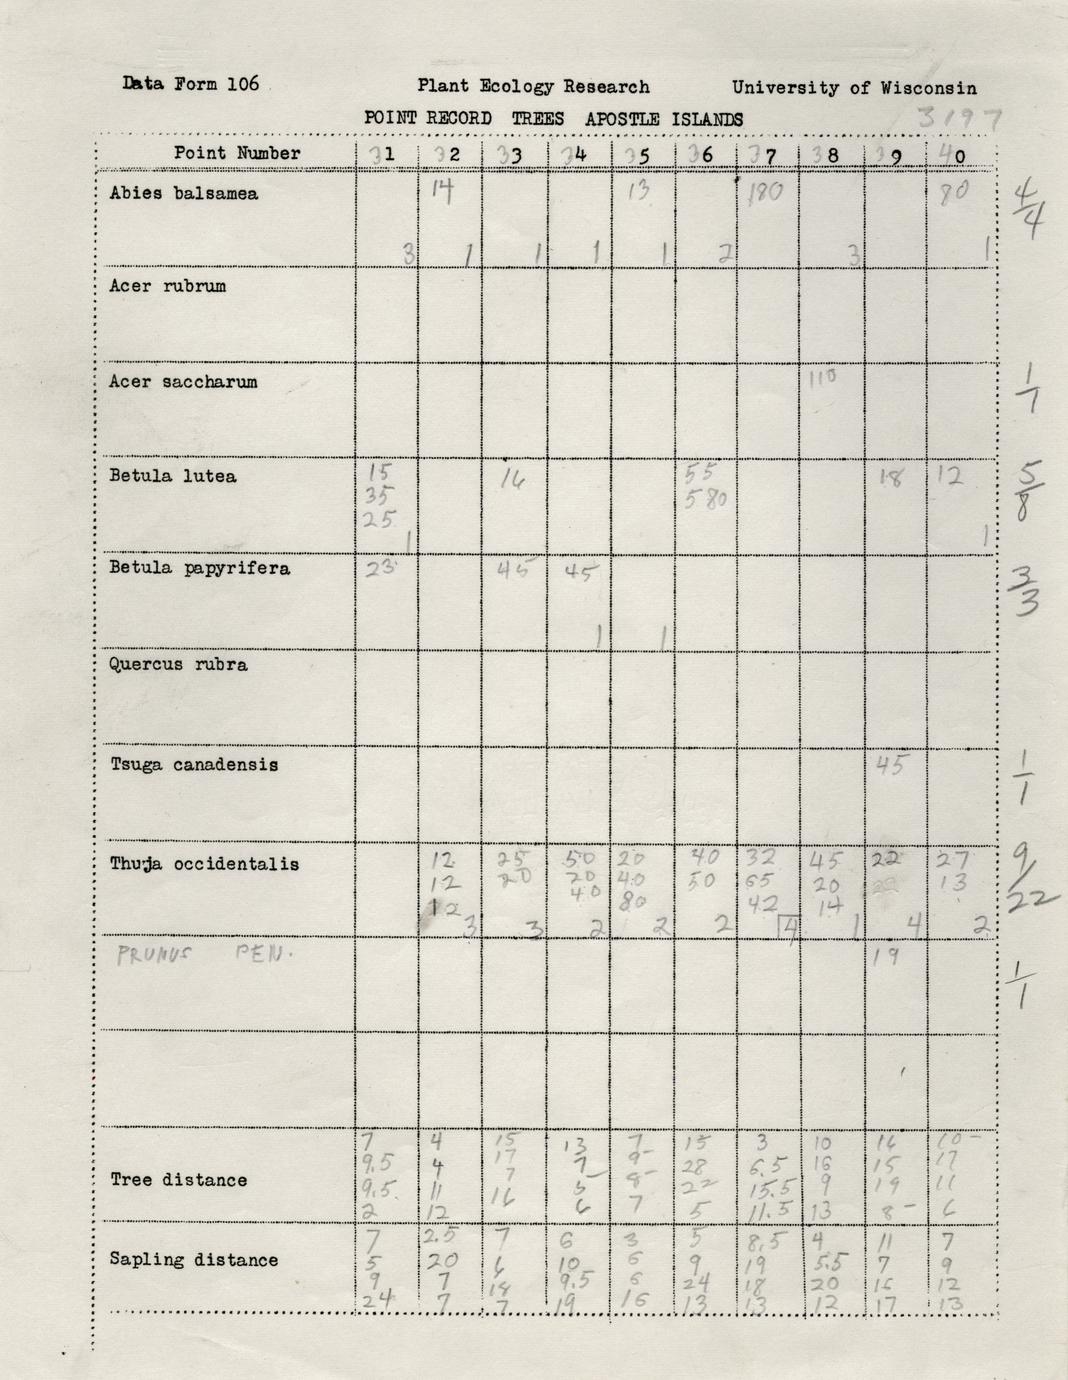 Data Form 106 Plant Ecology Research University of Wisconsin
POINT RECORD TREES APOSTLE ISLANDS 3197
Point Number 31 32 33 34 35 36 37 38 39 40
Abies balsamea 14 13 180 80 4/4
3 1 1 1 1 2 3 1
Acer rubrum
Acer saccharum 110 1/7
Betula lutea 15 16 55 18 12 5/8
35 580
25
1 1
Betula papyrifera 23 45 45 3/3
1 1
Quercus rubra
Tsuga canadensis 45 1/1
Thuja occidentalis 12 25 50 20 40 32 45 22 27 9/22
12 20 20 40 50 65 20 22 13
12 40 80 42 14
3 3 2 2 2 4 1 4 2
PRUNUS PEN. 19 1/1
7 4 15 13 7 15 3 10 16 10
9.5 4 17 7 9 28 6.5 16 15 17
Tree distance 9.5 11 7 5 8 22 15.5 9 19 11
2 12 16 6 7 5 11.5 13 8 6
7 2.5 7 6 3 5 8.5 4 11 7
Sapling distance 5 20 6 10 6 9 19 5.5 7 9
9 7 18 9.5 6 24 18 20 16 12
24 7 7 19 16 13 13 12 17 13